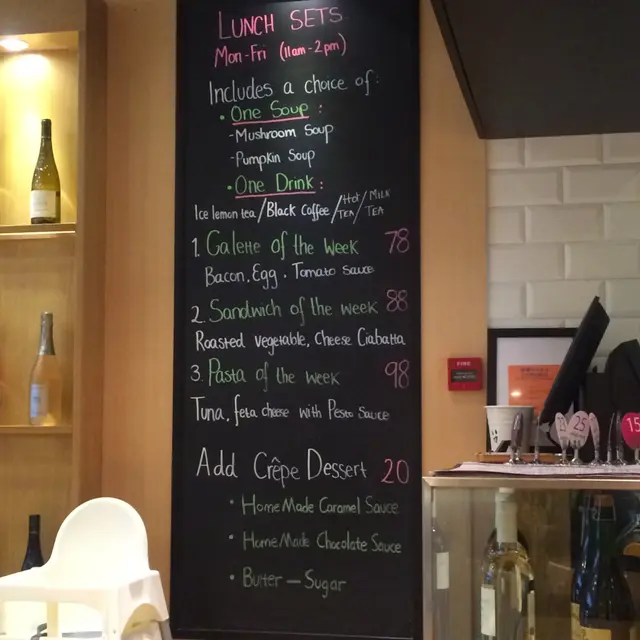 LUNCH SETS
Mon-Fri (11am-2pm)
Includes a choice of:
• One Soup:
- Mushroom Soup
- Pumpkin Soup
• One Drink:
Ice lemon tea/Black Coffee/Hot TEA/MILK TEA
1. Galette of the week 78
Bacon, Egg. Tomato sauce
2. Sandwich of the week 88
Roasted vegetable, Cheese Ciabatta
3. Pasta of the week 98
Tuna, feta cheese with Pesto Sauce
Add Crêpe Dessert 20
• Home Made Caramel Sauce
• Home Made Chocolate Sauce
• Butter — Sugar
FIRE
25
15